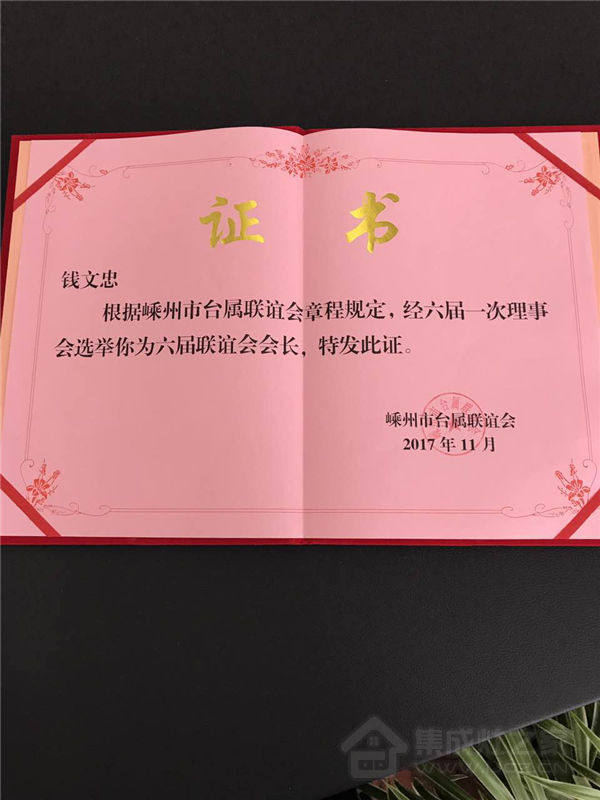 证 书
钱文忠
根据嵊州市台属联谊会章程规定，经六届一次理事
会选举你为六届联谊会会长，特发此证。
嵊州市台属联谊会
2017 年 11 月